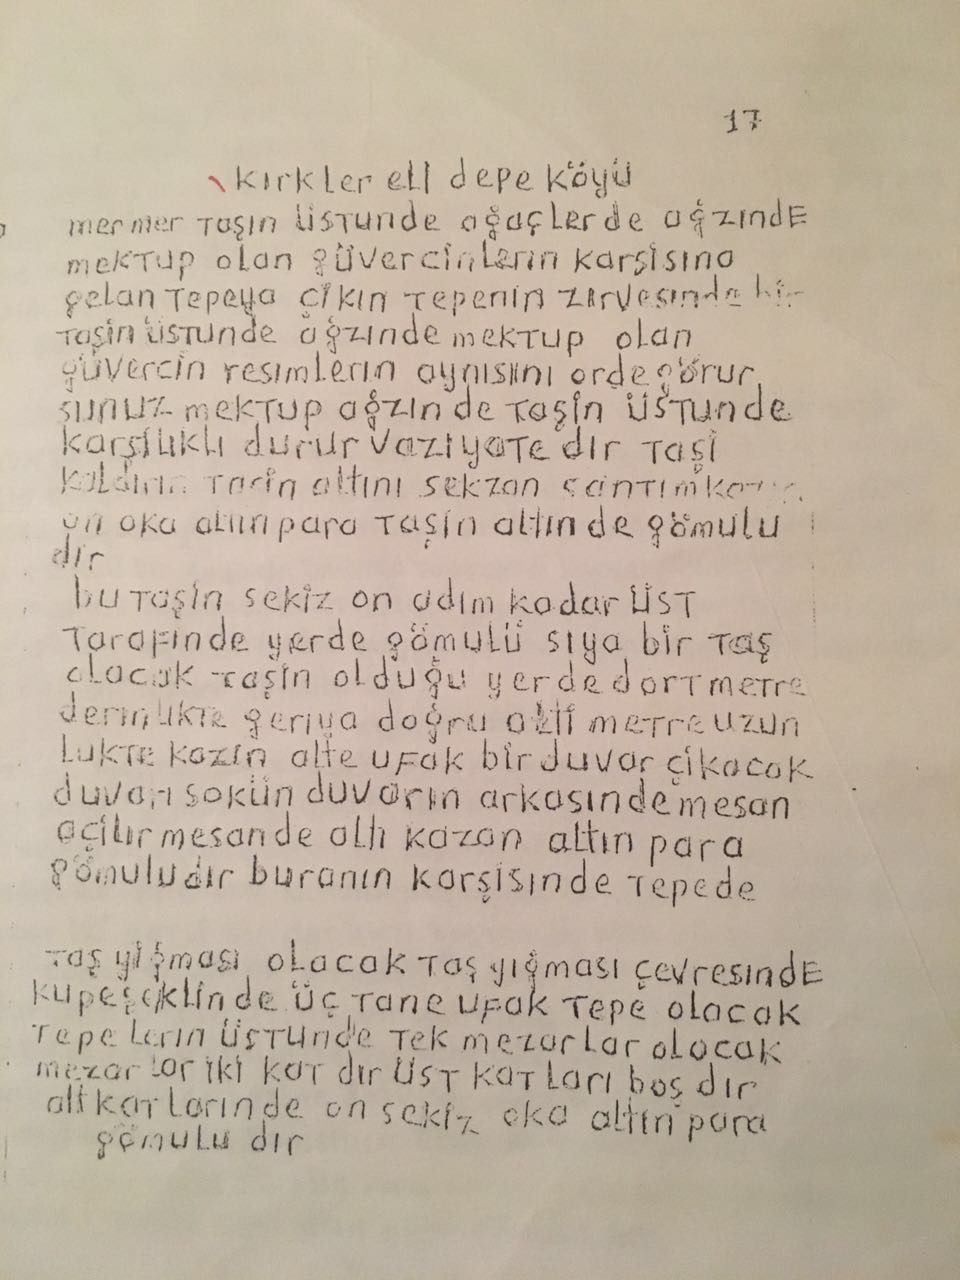 17
kırkler eli depe köyü
mermer taşın üstunde ağaçlerde ağzınde
mektup olan güvercinlerin karşisına
gelan tepeya çikın tepenin zirvesinde bir
taşin üstunde ağzınde mektup olan
güvercin resimlerin aynisini orde görur
sunuz mektup ağzın de taşin üstunde
karşilıklı durur vaziyate dir taşi
kaldırın taşin altını sekzan santim
on oka altin para taşin altin de gömulu
dır
bu taşin sekiz on adım kadar üst
tarafinde yerde gömulü siya bir taş
olacak taşin olduğu yerde dort metre
derinlikte geriya doğru altı metre uzun
lukte kazın alte ufak bir duvar çikacak
duvarı sokün duvarın arkasınde mesan
açilir mesande altı kazan altın para
gömuludır buranın karşisinde tepede
taş yiğması olacak taş yığması çevresinde
kupe şeklinde üç tane ufak tepe olacak
tepelerin üstunde tek mezarlar olacak
mezarlar iki kat dır üst katları boş dır
alt katlarınde on sekiz oka altin para
gömulu dır